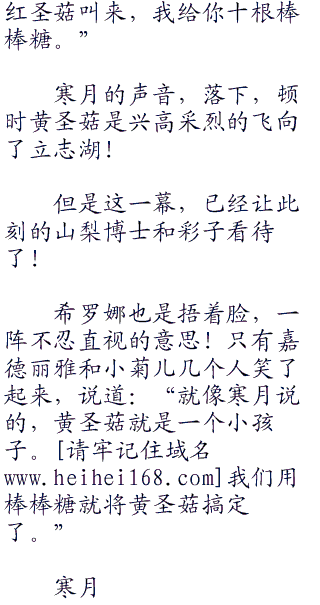 红圣菇叫来，我给你十根棒
棒糖。”
寒月的声音，落下，顿
时黄圣菇是兴高采烈的飞向
了立志湖！
但是这一幕，已经让此
刻的山梨博士和彩子看待
了！
希罗娜也是捂着脸，一
阵不忍直视的意思！只有嘉
德丽雅和小菊儿几个人笑了
起来，说道：“就像寒月说
的，黄圣菇就是一个小孩
子。[请牢记住域名
www.heihei168.com]我们用
棒棒糖就将黄圣菇搞定
了。”
寒月